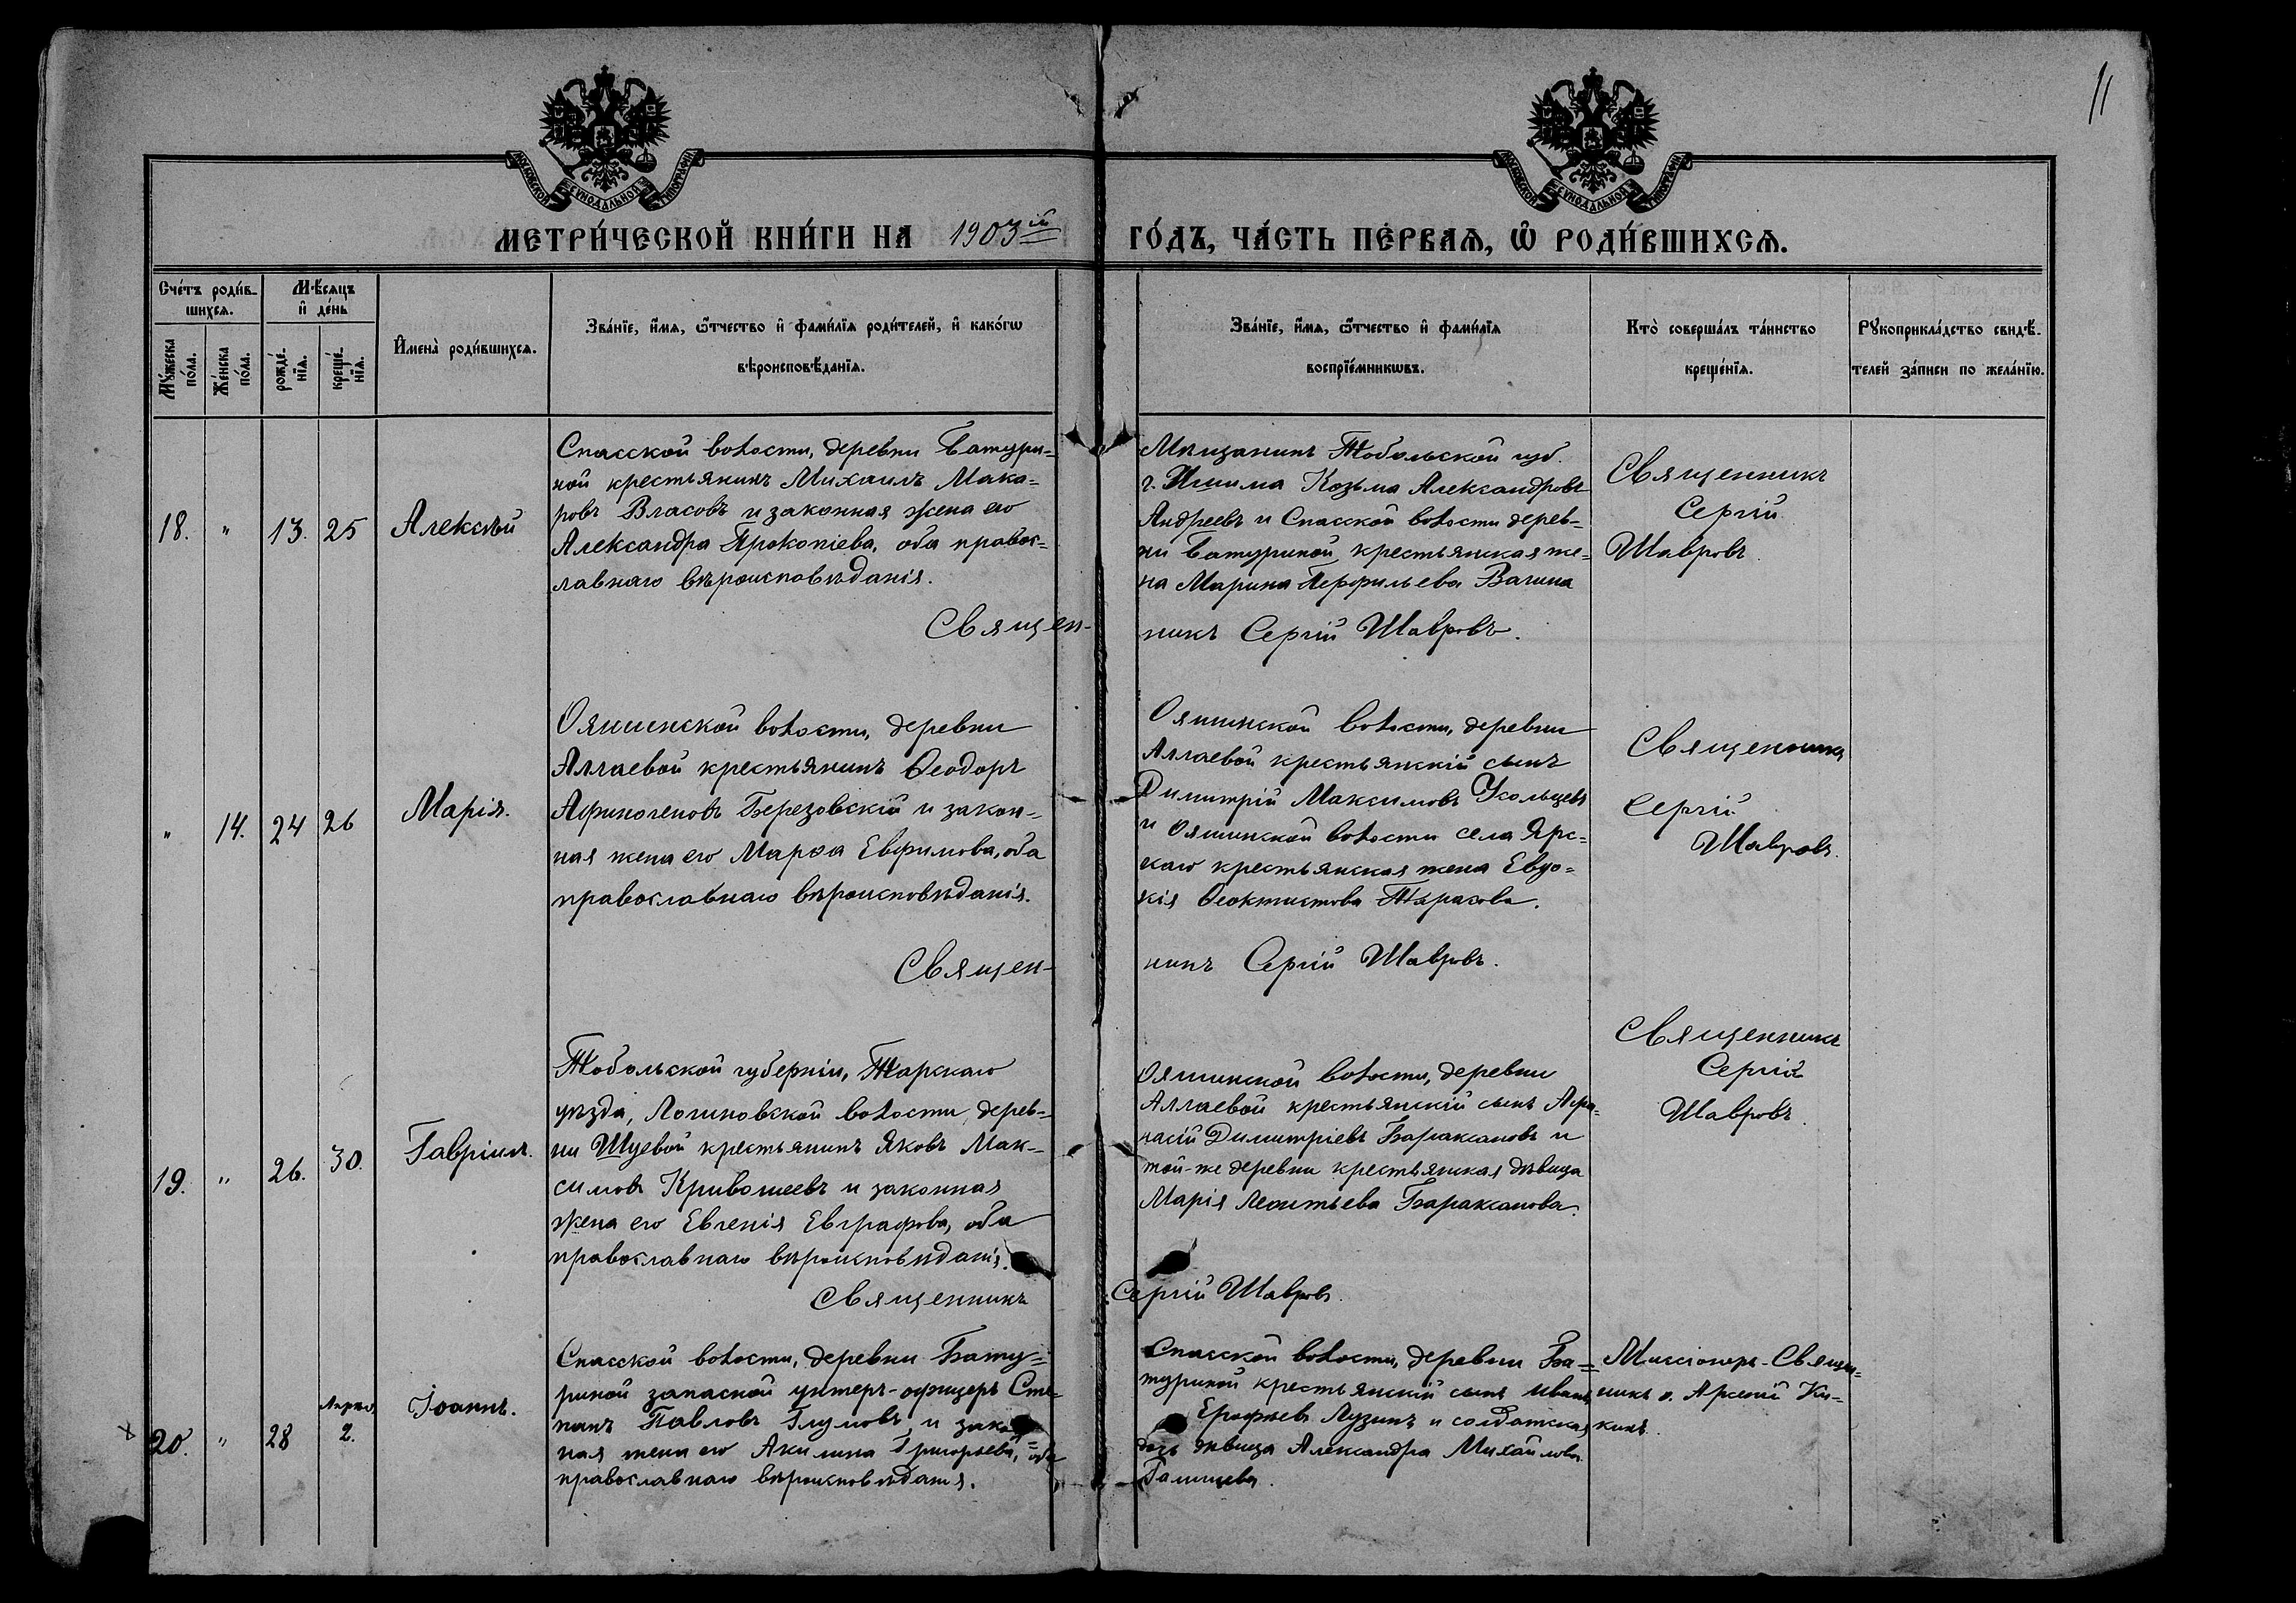 11
МОСКОВСКОЙ СѴНОДАЛЬНОЙ ТИПОГРАФІИ
МОСКОВСКОЙ СѴНОДАЛЬНОЙ ТИПОГРАФІИ
МЕТРИ́ЧЕСКОЙ КНИ́ГИ НА 1903ій ГО́ДЪ, ЧА́СТЬ ПЕ́РВАѦ, Ѡ҆ РОДИ́ВШИХСѦ.
Сче́тъ роди́в-
шихсѧ.
Мѣ́сѧцъ
и҆ де́нь
Мꙋ́жеска
по́ла.
Же́нска
по́ла.
рожде́-
нїѧ.
креще́-
нїѧ.
И҆мена̀ роди́вшихсѧ.
Зва́нїе, и҆́мѧ, ѻ҆́тчество и҆ фами́лїѧ роди́телей, и҆ како́гѡ
вѣроисповѣ́данїѧ.
Зва́нїе, и҆́мѧ, ѻ҆́тчество и҆ фами́лїѧ
воспрїе́мникѡвъ.
Кто̀ соверша́лъ та́инство
креще́нїѧ.
Рꙋкоприкла́дство свидѣ́-
телей за́писи по жела́нїю.
18. " 13. 25 Алексѣй
Спасской волости, деревни Батури-
ной крестьянинъ Михаилъ Мака-
ровъ Власовъ и законная жена его
Александра Прокопіева, оба правос-
лавнаго вѣроисповѣданія.
Мѣщанинъ Тобольской губ.
г. Ишима Козьма Александровъ
Андреевъ и Спасской волости дерев-
ни Батуриной, крестьянская же-
на Марина Перфильева Вагина
Священникъ
Сергій
Шавровъ.
Священ-
никъ Сергій Шавровъ.
" 14. 24 26 Марія.
Ояшинской волости, деревни
Аллаевой крестьянинъ Ѳеодоръ
Афиногеновъ Березовскій и закон-
ная жена его Марѳа Евфимова, оба
православнаго вѣроисповѣданія.
Ояшинской волости, деревни
Аллаевой крестьянскій сынъ
Димитрій Максимовъ Усольцевъ
и Ояшинской волости села Ярс-
каго крестьянская жена Евдо-
кія Ѳеоктистова Тарасова.
Священникъ
Сергій
Шавровъ.
Священ-
никъ Сергій Шавровъ.
19. " 26. 30. Гавріилъ.
Тобольской губерніи, Тарскаго
уѣзда, Логиновской волости, дерев-
ни Шуевой крестьянинъ Яковъ Мак-
симовъ Кривошеевъ и законная
жена его Евгенія Евграфова, оба
православнаго вѣроисповѣданія.
Ояшинской волости, деревни
Аллаевой крестьянскій сынъ Афа-
насій Димитріевъ Бараксановъ и
той-же деревни крестьянская дѣвица
Марія Леонтьева Бараксанова.
Священникъ
Сергій
Шавровъ.
Священникъ
Сергій Шавровъ.
20. " 28 Апрѣля
2. Іоаннъ.
Спасской волости, деревни Бату-
риной запасной унтеръ-офицеръ Сте-
панъ Павловъ Глумовъ, и закон-
ная жена его Акилина Григорьева, оба
православнаго вѣроисповѣданія.
Спасской волости, деревни Ба-
туриной крестьянскій сынъ Иванъ
Ерофѣевъ Лузинъ и солдатская
дочь дѣвица Александра Михайлова
Миссіонеръ-Священ-
никъ о. Арсеній Ки-
кинъ.